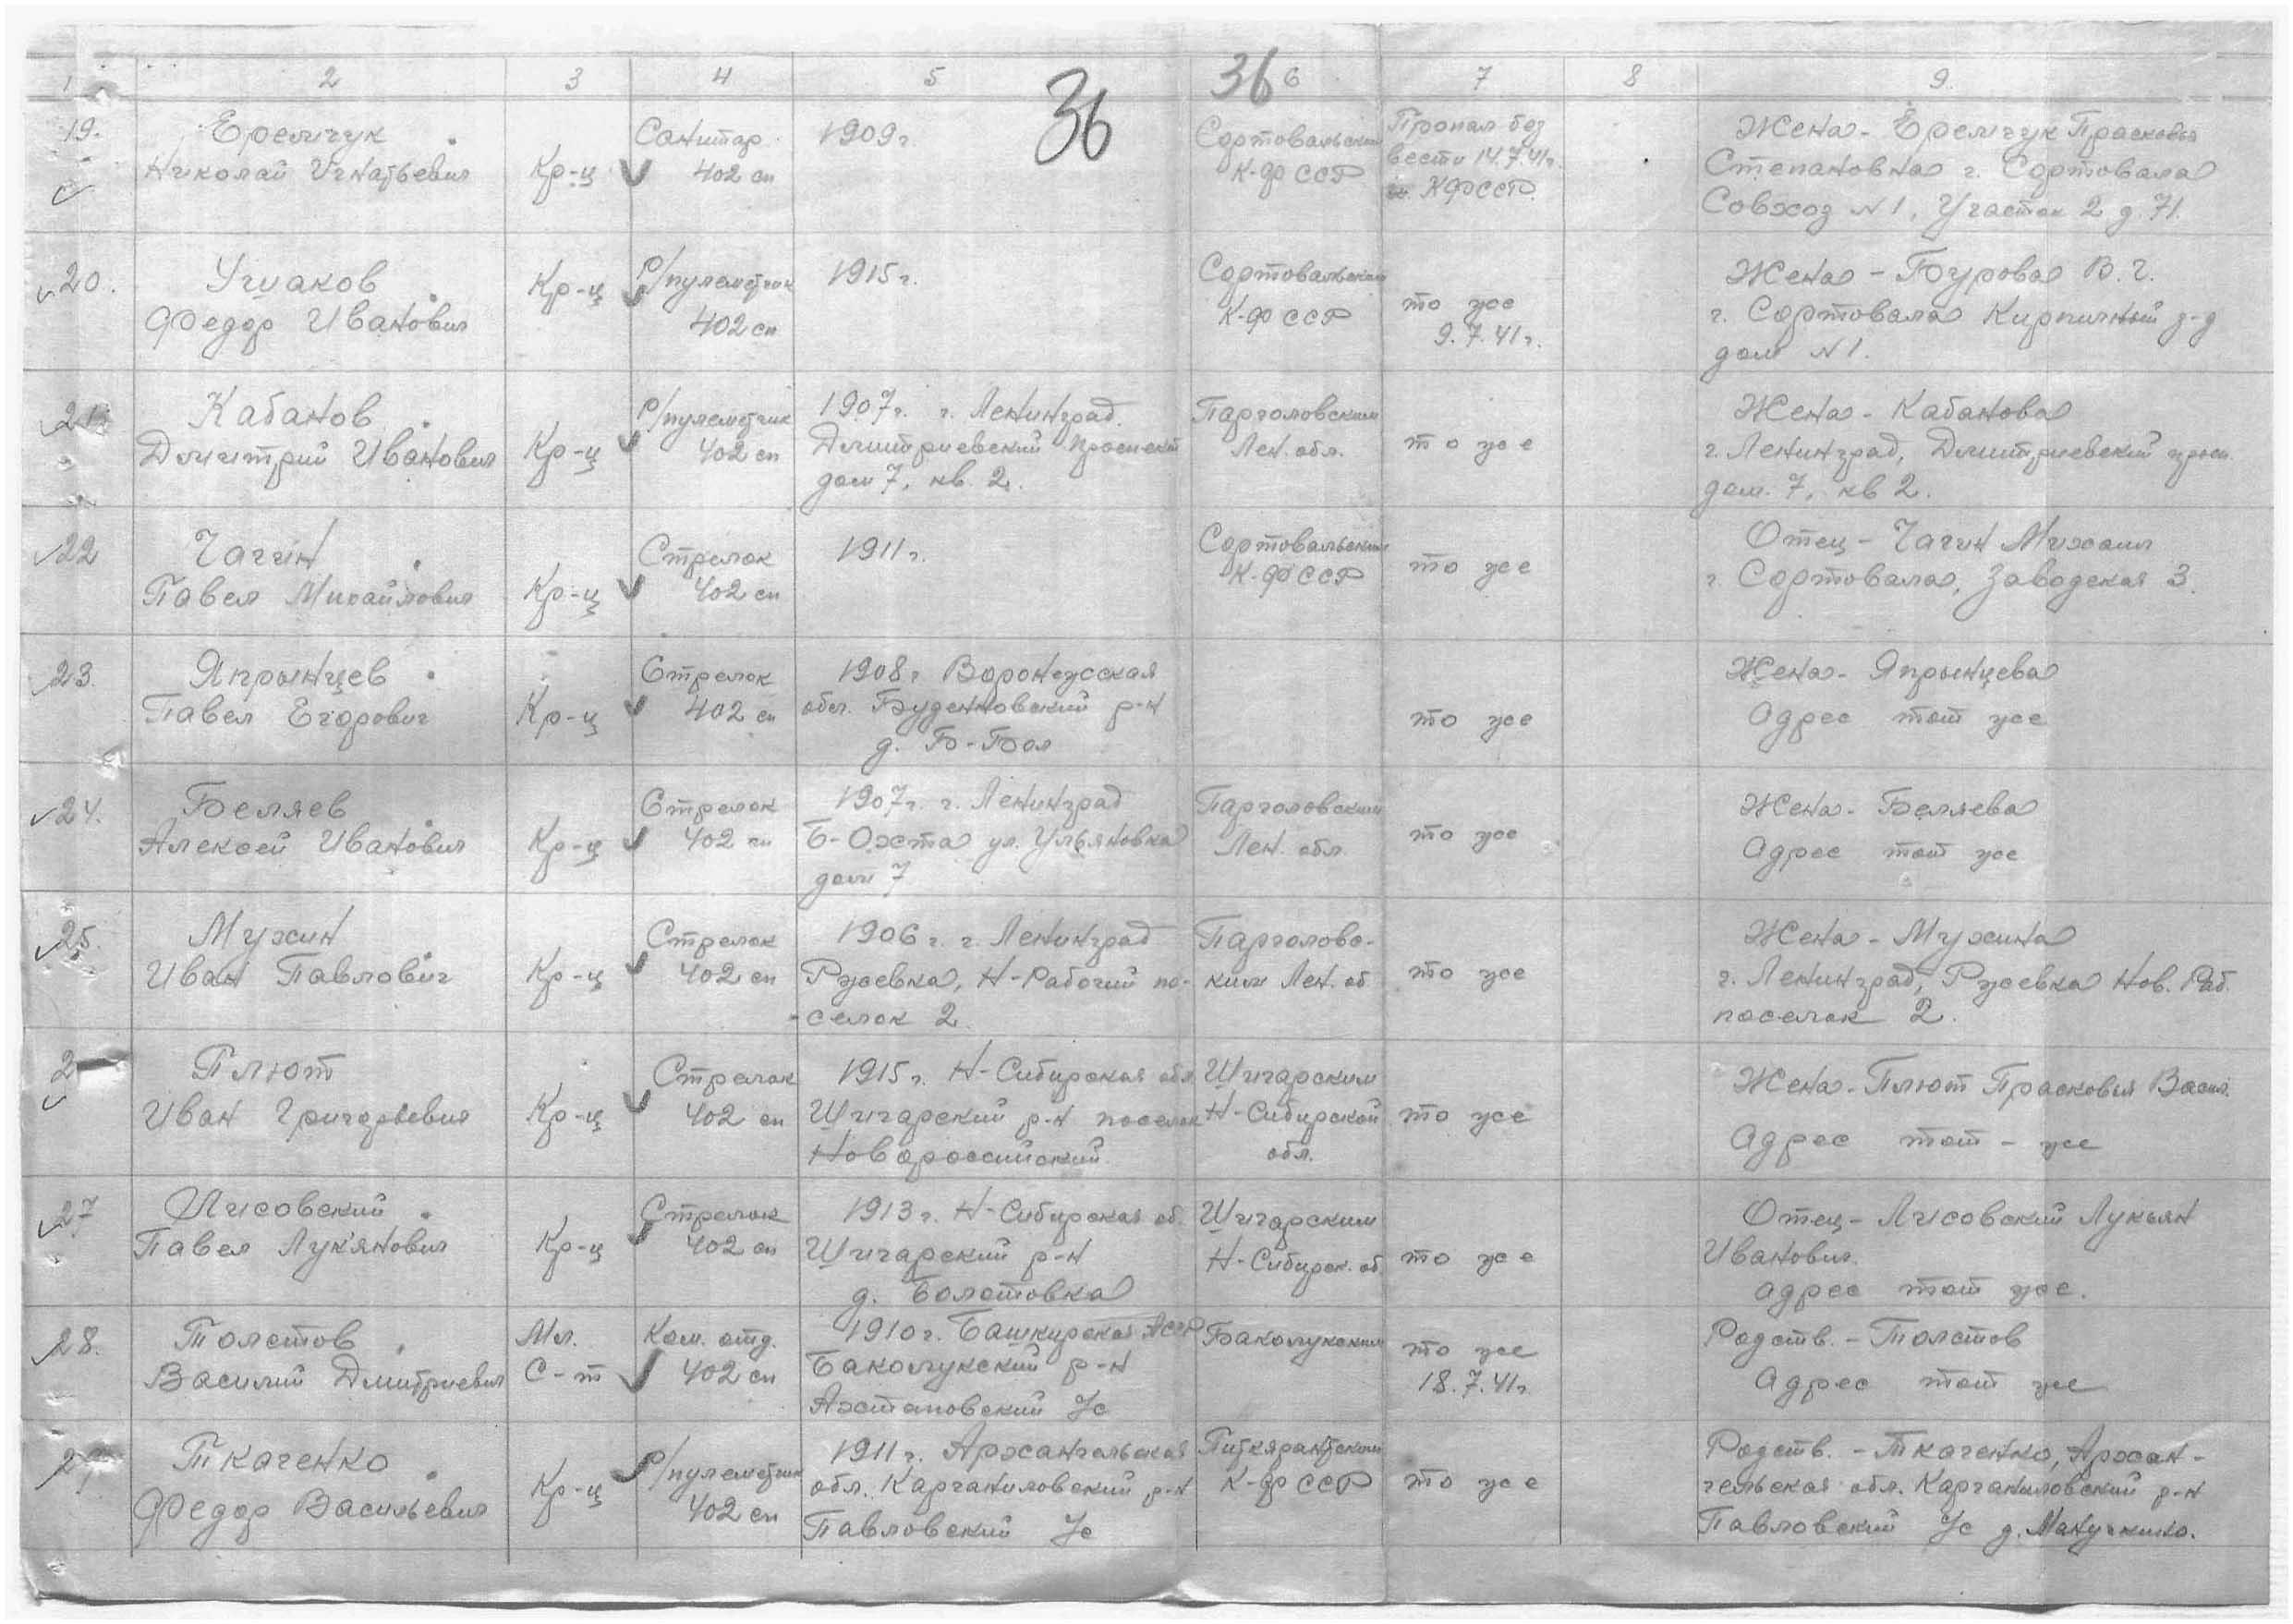 1 2 3 4 5 6 7 8 9.
36 36
19. Еремчук Санитар 1909 г. Сортовальским Пропал без Жена - Еремчук Прасковья
Николай Игнатьевич Кр-ц 402 сп К-Ф ССР вести 14.7.41г. Степановна г. Сортовала
КФССР. Совхоз N1, Участок 2 д. 71.
20. Ушаков Кр-ц Р/пулеметчик 1915 г. Сортовальским Жена - Бурова В. Г.
Федор Иванович 402 сп К-Ф ССР то же г. Сортовала Кирпичный з-д
9.7.41г. дом N1.
21. Кабанов Р/пулеметчик 1907г. г. Ленинград. Парголовским Жена - Кабанова
Дмитрий Иванович Кр-ц 402 сп Дмитриевский проспект Лен. обл. то же г. Ленинград, Дмитриевский просп.
дом 7, кв. 2. дом. 7, кв 2.
22 Чагин Стрелок 1911 г. Сортовальским Отец - Чагин Михаил
Павел Михайлович Кр-ц 402 сп К-Ф ССР то же г. Сортовала, Заводская 3.
23. Япрынцев Стрелок 1908 г Воронежская Жена - Япрынцева
Павел Егорович Кр-ц 402 сп обл. Буденновский р-н то же Адрес тот же
д. Б-Бол
24. Беляев Стрелок 1907г. г. Ленинград Парголовским Жена - Беляева
Алексей Иванович Кр-ц 402 сп Б-Охта ул. Ульяновка Лен. обл то же Адрес тот же
дом 7
25. Мухин Стрелок 1906 г. г. Ленинград Парголовс- Жена - Мухина
Иван Павлович Кр-ц 402 сп Ржевка, Н-Рабочий по- ким Лен. об то же г. Ленинград, Ржевка Нов. Раб.
-селок 2. поселок 2.
2 Плют Стрелок 1915 г. Н-Сибирская обл. Шигарским Жена - Плют Прасковья Васил.
Иван Григорьевич Кр-ц 402 сп Шигарский р-н поселок Н-Сибирской то же Адрес тот - же
Новороссийский обл.
27 Лисовский Стрелок 1913 г. Н-Сибирская об. Шигарским Отец - Лисовский Лукьян
Павел Лук'янович Кр-ц 402 сп Шигарский р-н Н-Сибирск. об. то же Иванович.
д. Болотовка адрес тот же.
28. Толстов Мл. Ком. отд. 1910 г. Башкирская АССР Бакалукским то же Родств. - Толстов
Василий Дмитриевич С-т 402 сп Бакалукский р-н 18.7.41г. Адрес тот же
Ахтановский с/с
Ткаченко Р/пулеметчик 1911 г. Архангельская Питкярантским Родств. - Ткаченко, Архан-
Федор Васильевич Кр-ц 402 сп обл. Карганиловский р-н К-Ф ССР то же гельская обл. Карганиловский р-н
Павловский с/с Павловский с/с д.